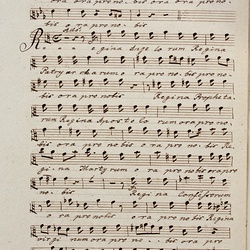 ora ora pro no_ bis ora pro no_
bis ora pro no_bis
Re_ _ _gina Angelorum Regina
Patryarcharum ora pro nobis pro no_
bis ora pro nobis Regina Propheta_
rum Regina Apostolorum ora pro no_
bis ora pro nobis ora pro no_ bis Re_
gina Martyrum ora pro nobis ora pro
no_ bis Regina Confessorum
ora pro nobis ora pro nobis Regina
virginum ora pro no_ bis ora pro